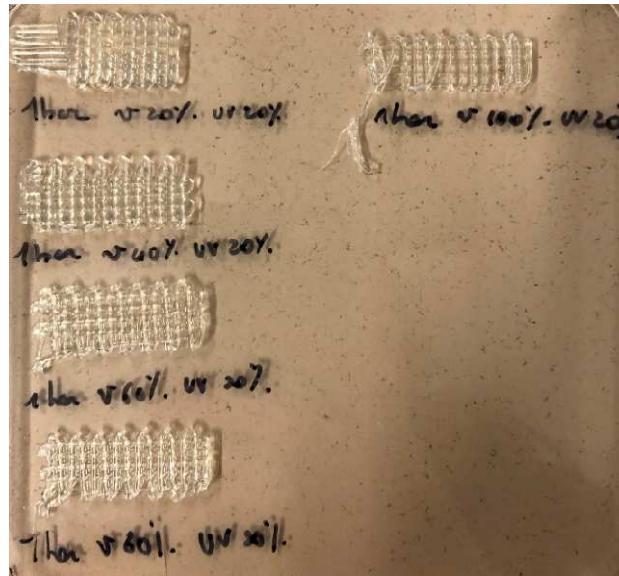 1bar v 20%. uv 20%
1bar v 100%. uv 20%
1bar v 40%. uv 20%.
1bar v 60%. uv 20%.
1bar v 80%. uv 20%.